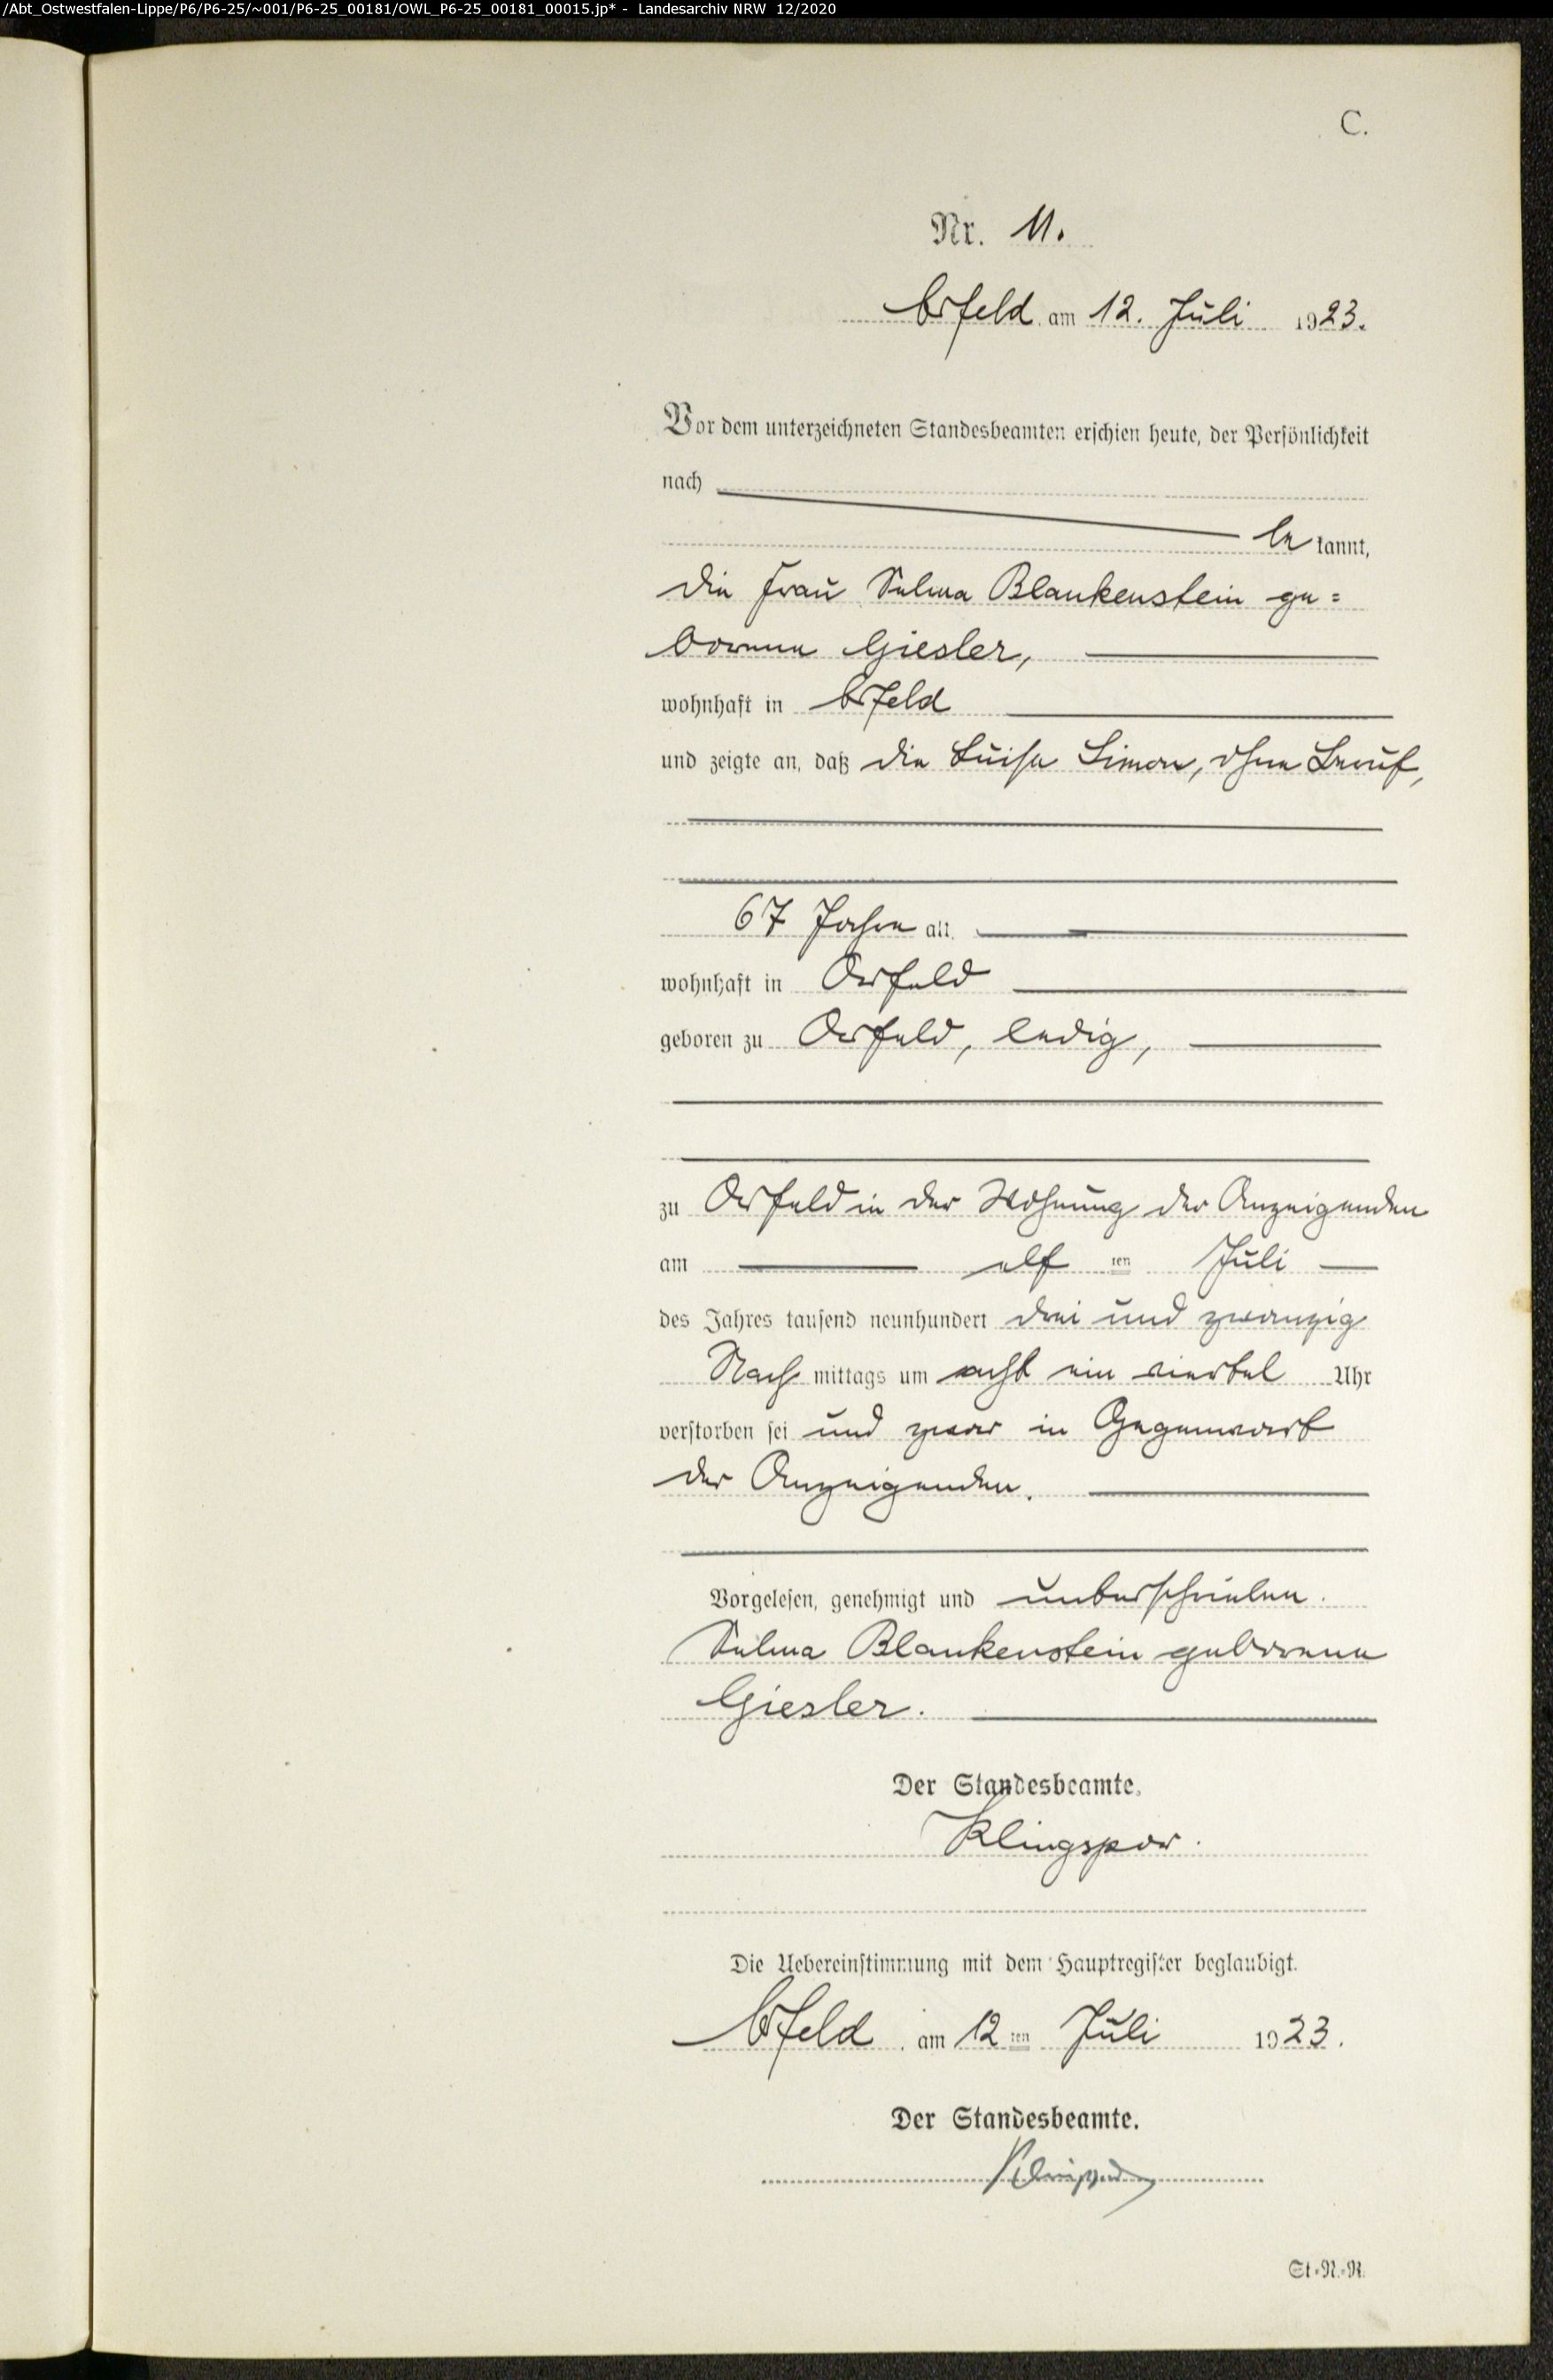 /Abt_Ostwestfalen-Lippe/P6/P6-25/~001/P6-25_00181/OWL_P6-25_00181_00015.jp* - Landesarchiv NRW 12/2020
C.
Nr. 11.
Arfeld, am 12. Juli 1923.
Vor dem unterzeichneten Standesbeamten erschien heute, der Persönlichkeit
nach
bekannt,
die Frau Selma Blankenstein ge=
borene Giesler,
wohnhaft in Arfeld
und zeigte an, daß die Luise Simon, ohne Beruf,
67 Jahre alt,
wohnhaft in Arfeld
geboren zu Arfeld, ledig,
zu Arfeld in der Wohnung der Anzeigenden
am elf ten Juli
des Jahres tausend neunhundert drei und zwanzig
Nachmittags um acht ein viertel Uhr
verstorben sei und zwar in Gegenwart
der Anzeigenden.
Vorgelesen, genehmigt und unterschrieben.
Selma Blankenstein geborene
Giesler.
Der Standesbeamte.
Klingspor.
Die Uebereinstimmung mit dem Hauptregister beglaubigt.
Arfeld, am 12ten Juli 1923.
Der Standesbeamte.
Klingspor
St.=N.=R.